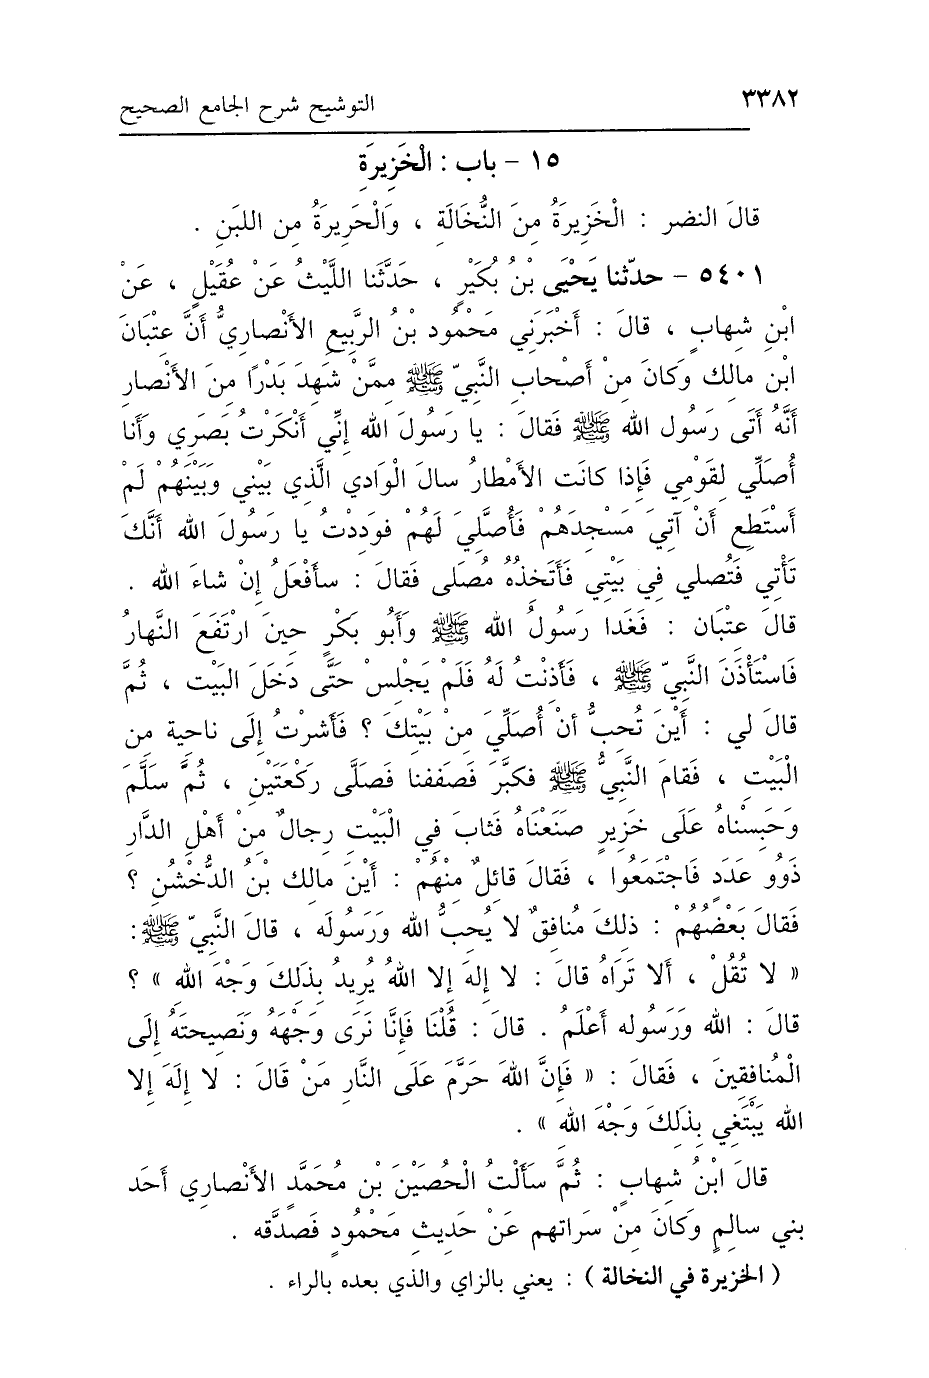 ٣٣٨٢ التوشيح شرح الجامع الصحيح
١٥ - باب : الْخَزِيرَةِ
قالَ النضر : الْخَزِيرَةُ مِنَ النُّخَالَةِ ، وَالْحَرِيرَةُ مِن اللبَنِ .
٥٤٠١ - حدّثنا يَحْيَى بْنُ بُكَيْرٍ ، حَدَّثَنا اللَّيْثُ عَنْ عُقَيْلٍ ، عَنْ
ابْنِ شِهابٍ ، قالَ : أَخْبَرَنِي مَحْمُود بْنُ الرَّبِيعِ الأَنْصارِيُّ أَنَّ عِتْبَانَ
ابْن مالِك وَكَانَ مِنْ أَصْحابِ النَّبِيّ ﷺ مِمَّنْ شَهِدَ بَدْرًا مِنَ الأَنْصار
أَنَّهُ أَتَى رَسُول الله ﷺ فَقالَ : يا رَسُولَ الله إِنِّي أَنْكَرْتُ بَصَرِي وأَنا
أُصَلِّي لِقَوْمِي فَإِذا كانَت الأَمْطارُ سالَ الْوَادِي الَّذِي بَيْنِي وَبَيْنَهُمْ لَمْ
أَسْتَطِع أَنْ آتِيَ مَسْجِدَهُمْ فَأُصَلِّيَ لَهُمْ فوَدِدْتُ يا رَسُولَ الله أَنَّكَ
تَأْتِي فَتُصلي فِي بَيْتِي فَأَتَّخِذُهُ مُصَلى فَقالَ : سأَفْعَلُ إِنْ شاءَ الله .
قالَ عِتْبَان : فَغَدا رَسُولُ الله ﷺ وأَبُو بَكْرٍ حِينَ ارْتَفَعَ النَّهارُ
فَاسْتَأْذَنَ النَّبِيّ ﷺ ، فَأَذِنْتُ لَهُ فَلَمْ يَجْلِسْ حَتَّى دَخَلَ البَيْت ، ثُمَّ
قالَ لي : أَيْنَ تُحِبُّ أنْ أُصَلِّيَ مِنْ بَيْتِكَ ؟ فَأَشرْتُ إِلَى ناحِية من
الْبَيْتِ ، فَقامَ النَّبِيُّ ﷺ فكَبَّرَ فَصَفَفنا فَصَلَّى رَكْعَتَيْنِ ، ثُمَّ سَلَّمَ
وَحَبَسْناهُ عَلَى خَزِيرٍ صَنَعْنَاهُ فَثابَ فِي الْبَيْتِ رِجالٌ مِنْ أَهْلِ الدَّارِ
ذَوُو عَدَدٍ فَاجْتَمَعُوا ، فَقالَ قائِلٌ مِنْهُمْ : أَيْنَ مالِك بْنُ الدُّخْشُنِ ؟
فَقالَ بَعْضُهُمْ : ذلِكَ مُنافِقٌ لا يُحِبُّ الله وَرَسُولَه ، قالَ النَّبِيّ ﷺ :
« لا تَقُلْ ، أَلا تَرَاهُ قالَ : لا إلهَ إلا اللهُ يُرِيدُ بِذَلِكَ وَجْهَ الله » ؟
قالَ : الله وَرَسُوله أَعْلَمُ . قالَ : قُلْنَا فَإِنَّا نَرَى وَجْهَهُ وَنَصِيحتَهُ إِلَى
الْمُنافِقِينَ ، فَقالَ : « فَإِنَّ اللهَ حَرَّمَ عَلَى النَّارِ مَنْ قَالَ : لا إِلَهَ إِلا
الله يَبْتَغِي بِذَلِكَ وَجْهَ اللهِ » .
قالَ ابْنُ شِهابٍ : ثُمَّ سَأَلْتُ الْحُصَيْنَ بْن مُحَمَّدٍ الأَنْصاري أَحَد
بني سالِمٍ وَكَانَ مِنْ سَرَاتِهم عَنْ حَدِيثِ مَحْمُودٍ فَصدَّقه .
( الخزيرة في النخالة ) : يعني بالزاي والذي بعده بالراء .